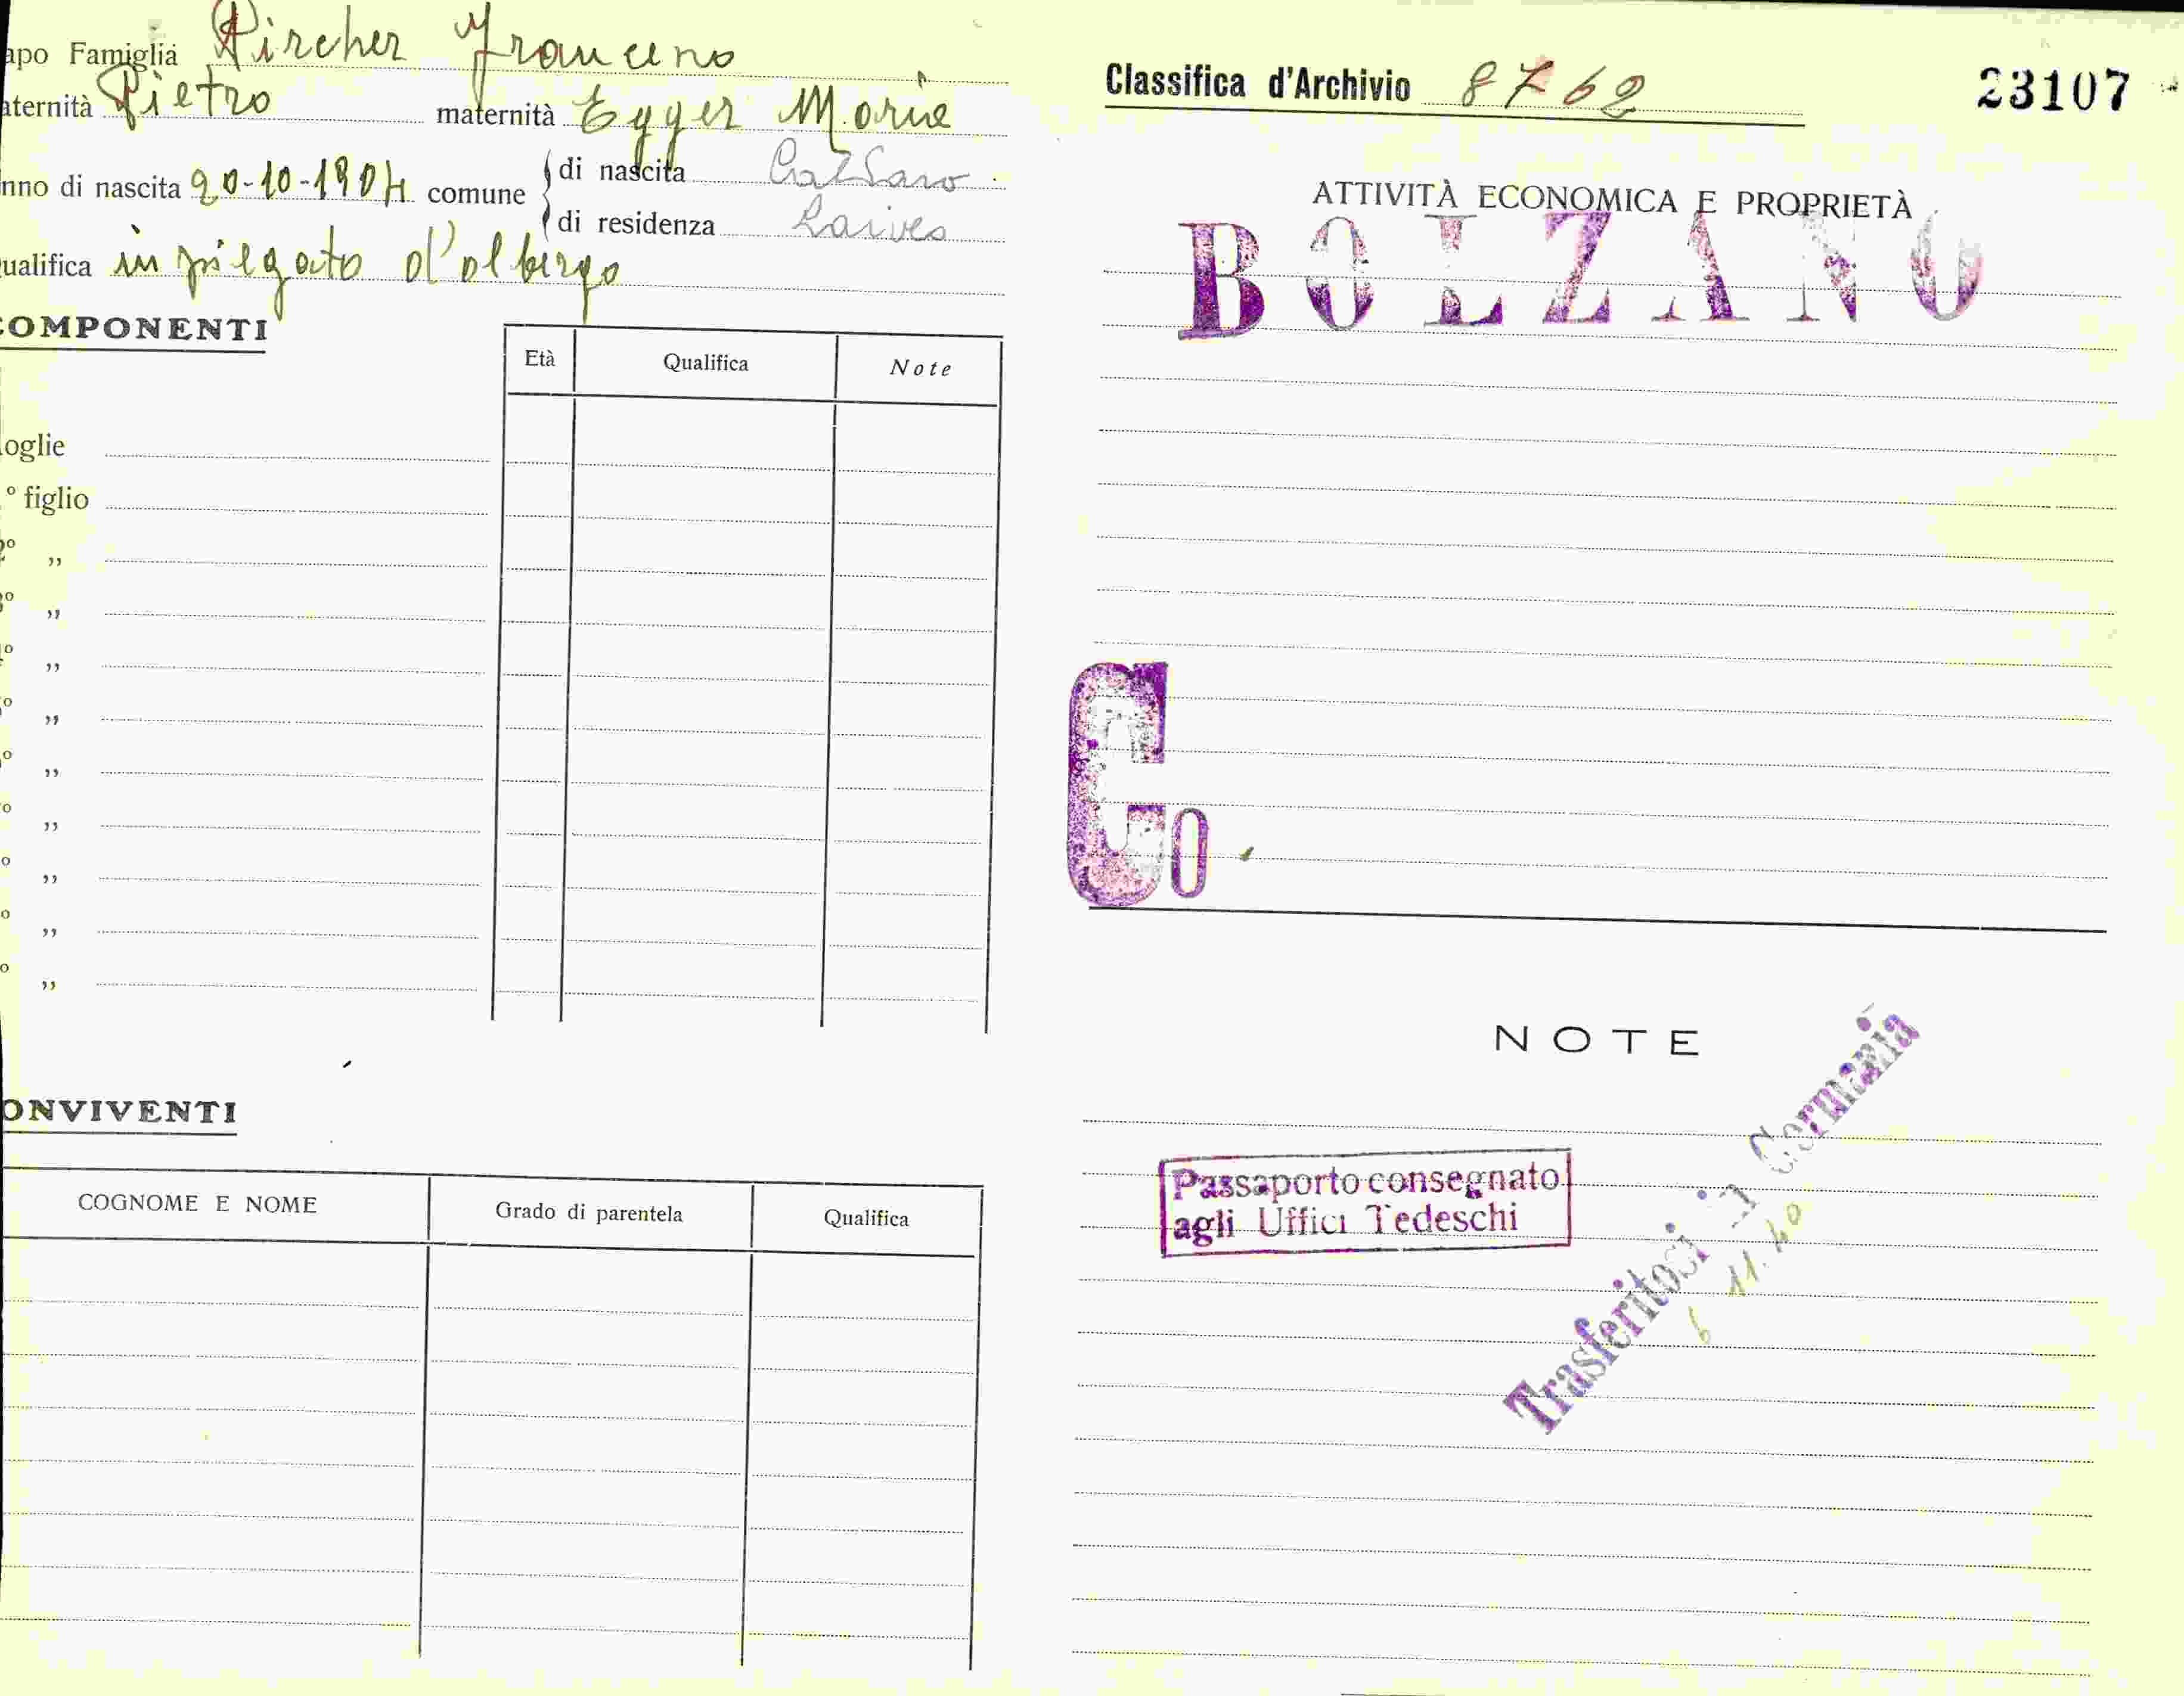 apo Famiglia Pircher Francesco
aternità Pietro maternità Egger Maria
nno di nascita 20-10-1904 comune di nascita Caldaro
di residenza Laives
ualifica impiegato d'albergo
COMPONENTI
Età Qualifica Note
oglie
º figlio
2º „
º „
º „
º „
º „
º „
º „
º „
º „
ONVIVENTI
COGNOME E NOME Grado di parentela Qualifica
Classifica d'Archivio 8762 23107
ATTIVITÀ ECONOMICA E PROPRIETÀ
BOLZANO
Co
NOTE
Passaporto consegnato
agli Uffici Tedeschi
Trasferitosi in Germania
6 11.40